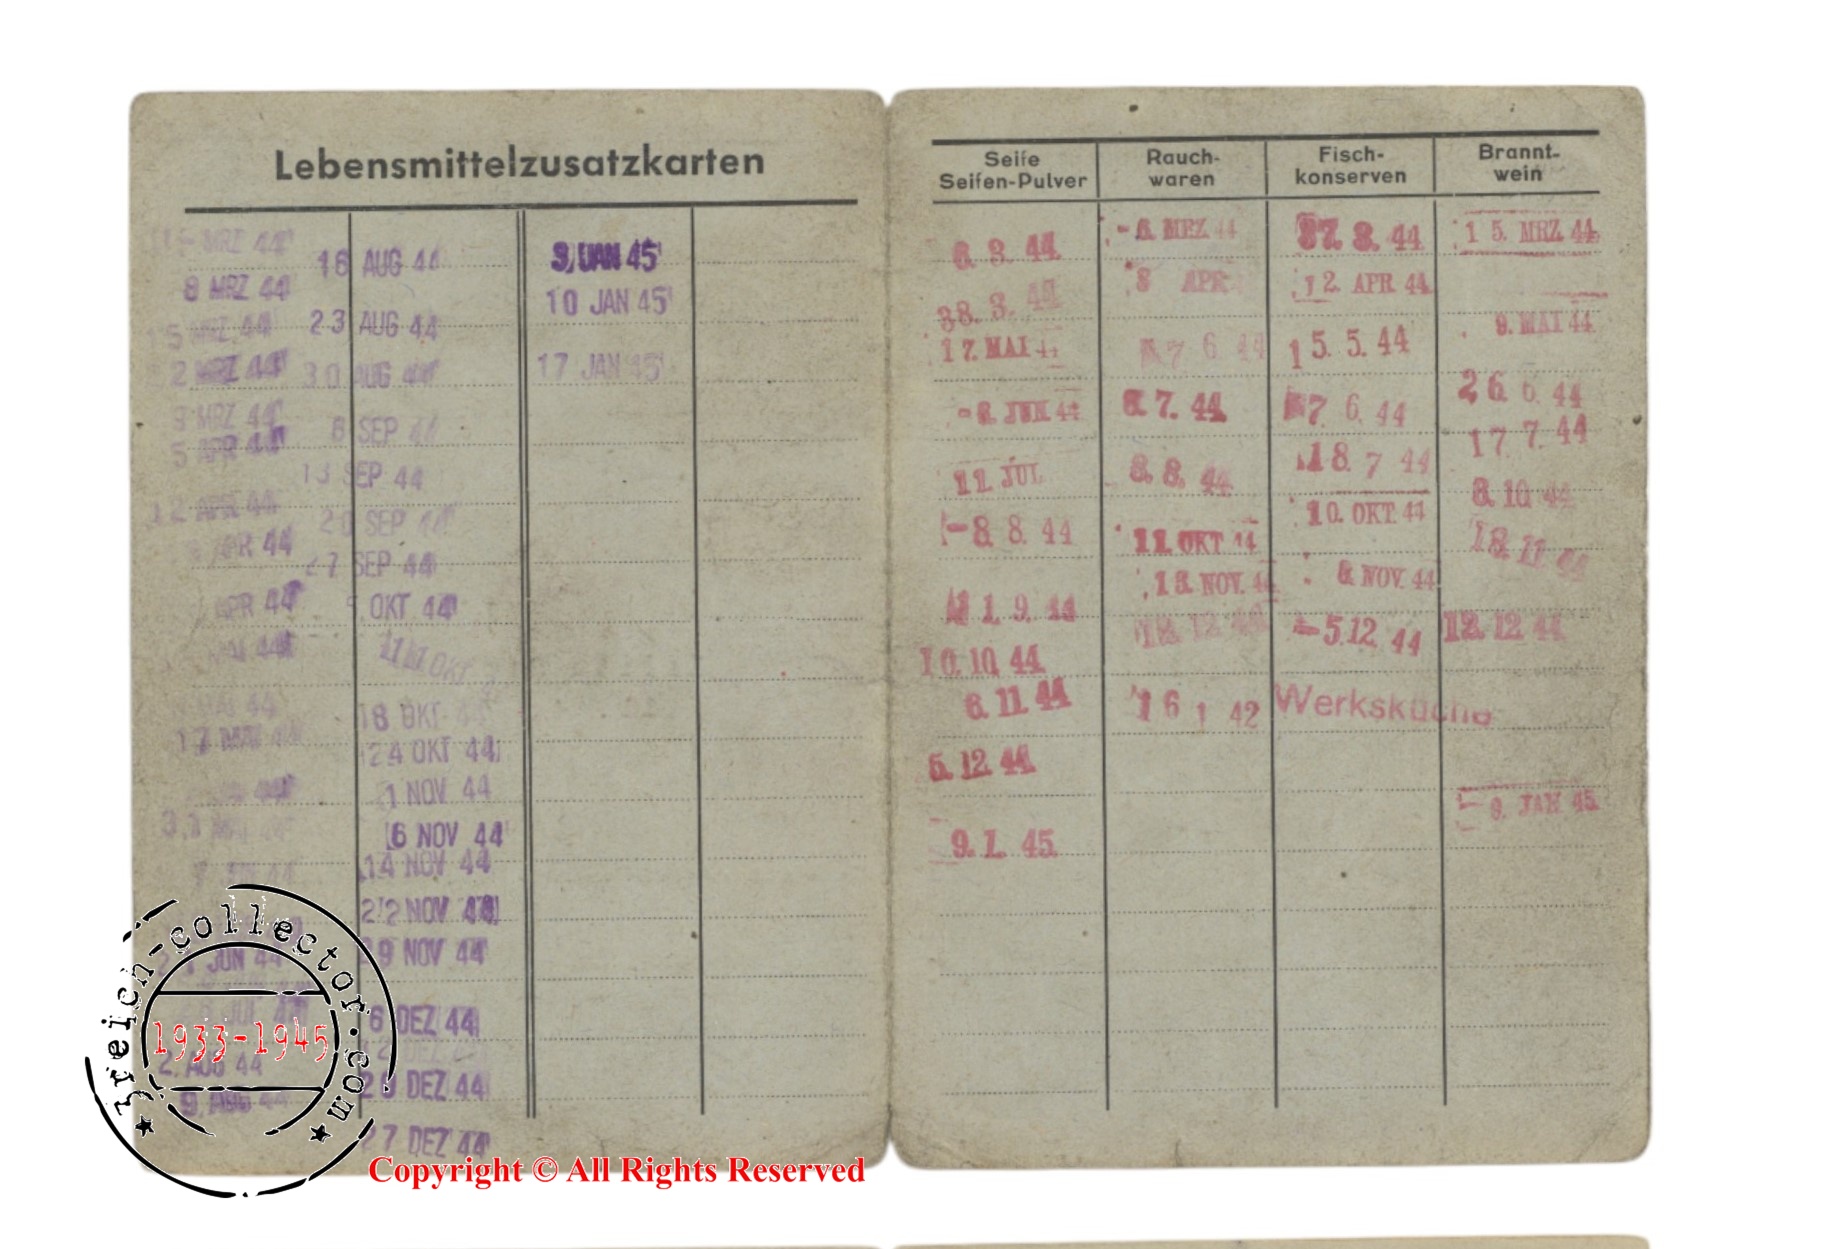 Lebensmittelzusatzkarten
8 MRZ 44
5 MRZ 44
2 MRZ 44
9 MRZ 44
5 APR 44
12 APR 44
APR 44
APR 44
44
MAI 44
17 MAI 44
31
JUN 44
21 JUN 44
2. AUG 44
9. AUG 44
16 AUG 44
23 AUG 44
30 AUG 44
6 SEP 44
13 SEP 44
20 SEP 44
27 SEP 44
OKT 44
11 OKT
18 OKT 44
24 OKT 44
1 NOV 44
6 NOV 44
14 NOV 44
22 NOV 44
29 NOV 44
6 DEZ 44
12 DEZ
20 DEZ 44
27 DEZ 44
3 JAN 45
10 JAN 45
17 JAN 45
Seife
Seifen-Pulver
6. 3. 44
3. 44
17. MAI 44
- 6. JUN 44
11. JUL
- 8. 8. 44
1. 9. 44
10. 10. 44
6. 11 44
5. 12. 44
9. 1. 45.
Rauch-
waren
- 6. MRZ 44
3 APR
7 6 44
6. 7. 44
8. 8. 44
11. OKT 44
13. NOV. 44
12. 12 44
16 1 42
Fisch-
konserven
7. 3. 44
12. APR 44
15. 5. 44
7 6. 44
18. 7 44
10. OKT 44
8. NOV. 44
- 5. 12 44
Werksküche
Brannt-
wein
15. MRZ 44
9. MAI 44
26. 6. 44
17 7. 44
8. 10 44
18. 11 44
12. 12 44
- 9. JAN 45.
3reich-collector.com
1933-1945
Copyright © All Rights Reserved